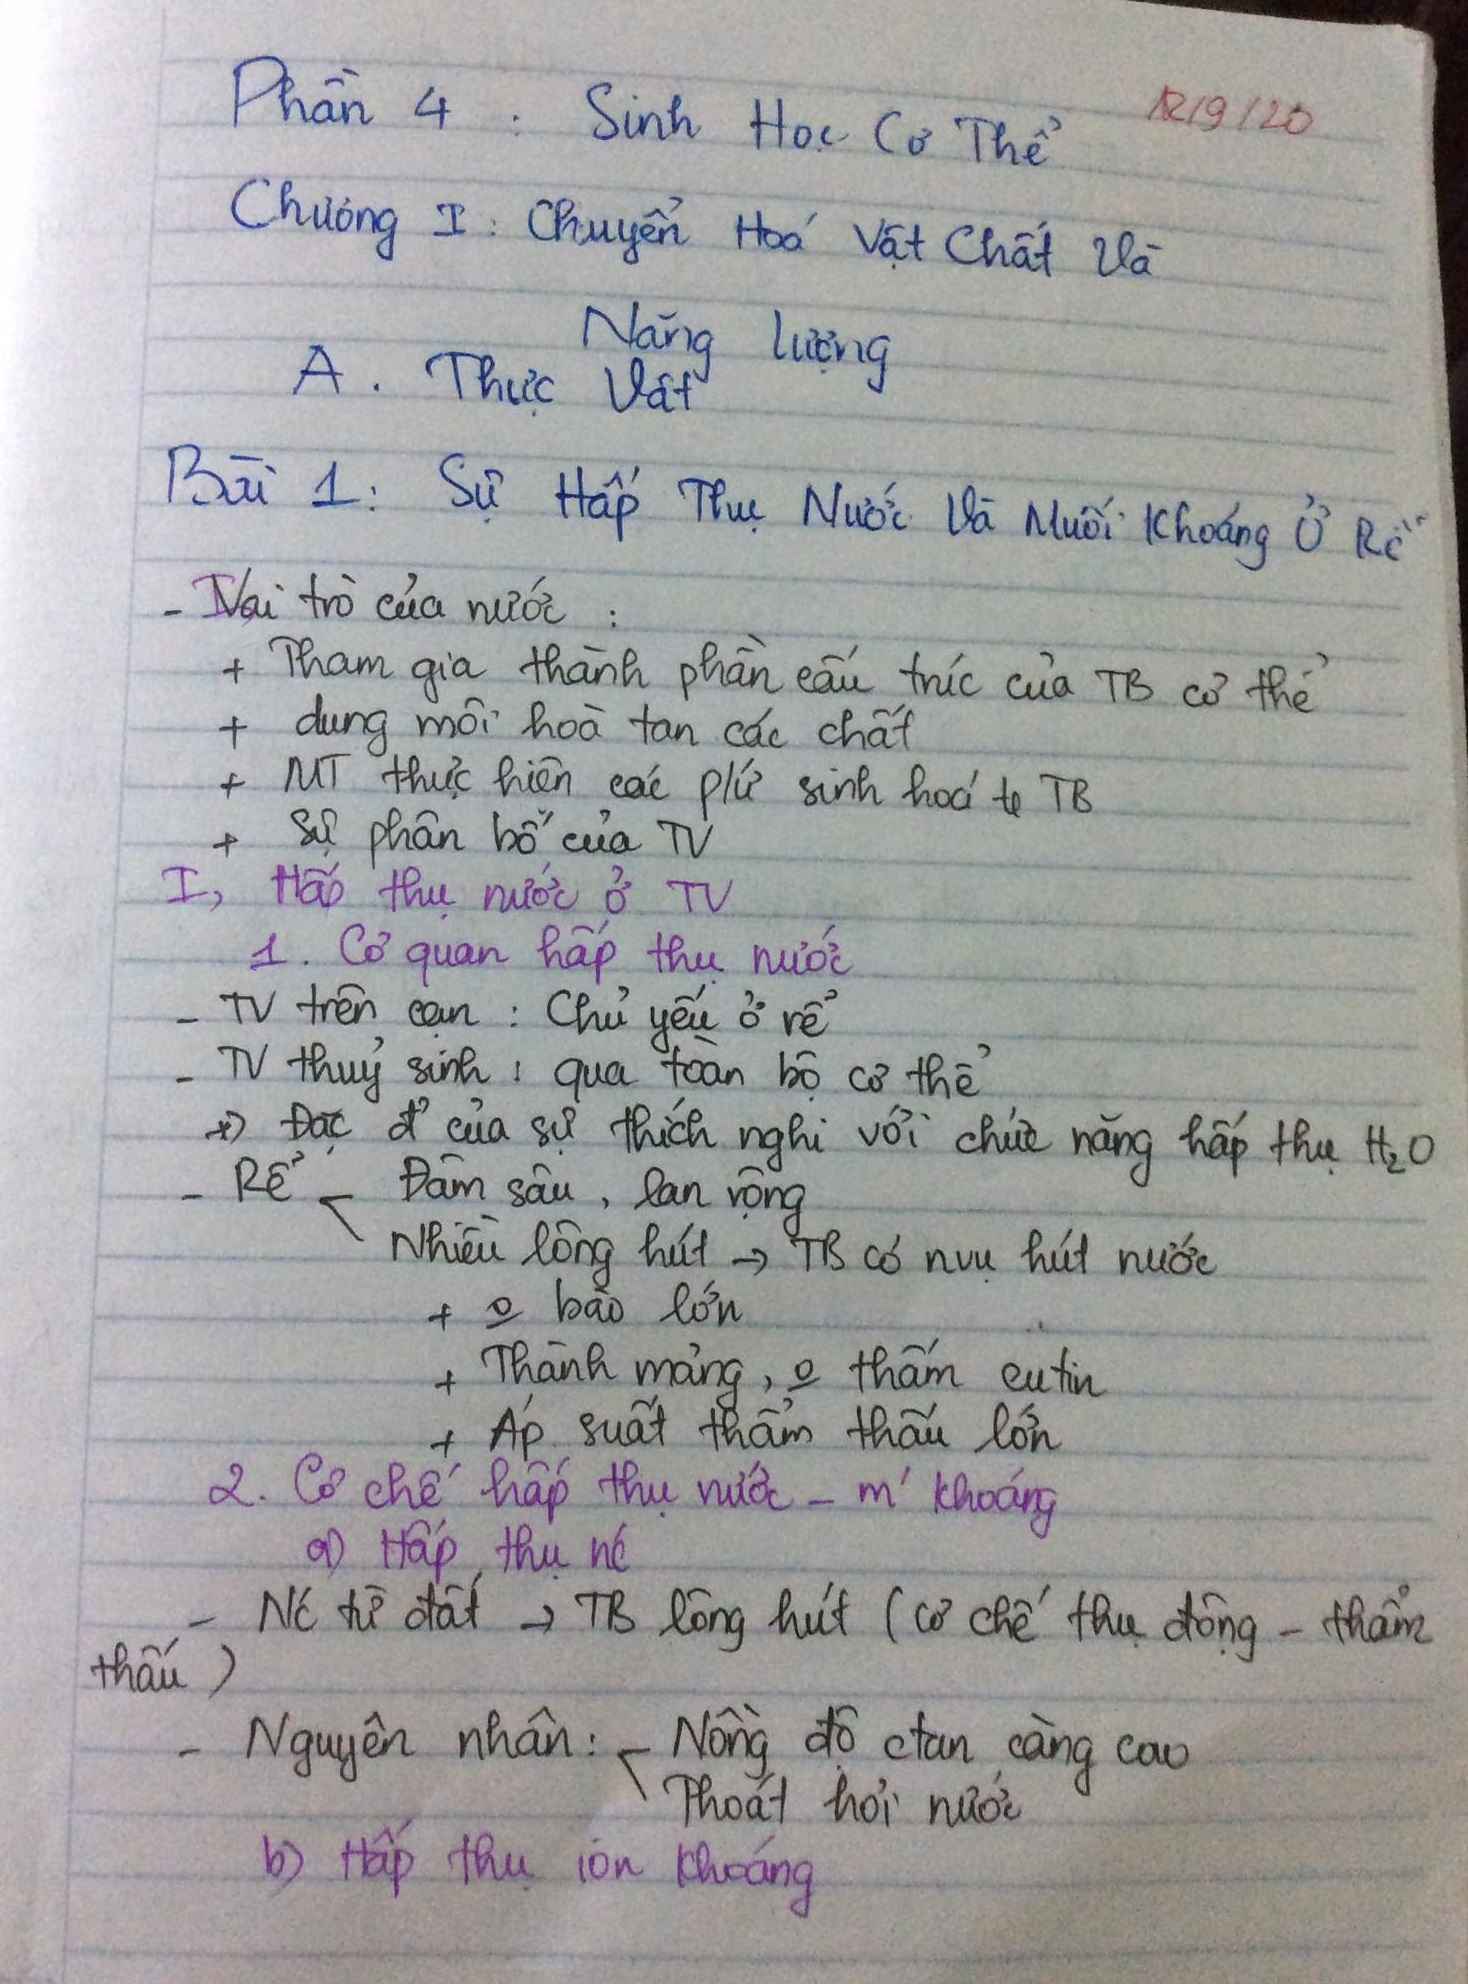 12/9/20
Phần 4 : Sinh Học Cơ Thể
Chương I : Chuyển Hoá Vật Chất Và
Năng lượng
A . Thực Vật
Bài 1 : Sự Hấp Thụ Nước Và Muối Khoáng Ở Rễ
- Vai trò của nước :
+ Tham gia thành phần cấu trúc của TB cơ thể
+ dung môi hoà tan các chất
+ MT thực hiện các p/ứ sinh hoá to TB
+ Sự phân bố của TV
I, Hấp thụ nước ở TV
1. Cơ quan hấp thụ nước
- TV trên cạn : Chủ yếu ở rể
- TV thuỷ sinh : qua toàn bộ cơ thể
*) Đặc đ' của sự thích nghi với chức năng hấp thụ H₂O
- Rể - Đâm sâu, lan rộng
Nhiều lông hút → TB có nvụ hút nước
+ o bào lớn
+ Thành mỏng, o thấm cutin
+ Áp suất thẩm thấu lớn
2. Cơ chế hấp thụ nước - m' khoáng
a) Hấp thụ nc
- Nc từ đất → TB lông hút ( cơ chế thụ động - thẩm
thấu )
- Nguyên nhân : - Nồng độ ctan càng cao
Thoát hơi nước
b) Hấp thụ ion khoáng